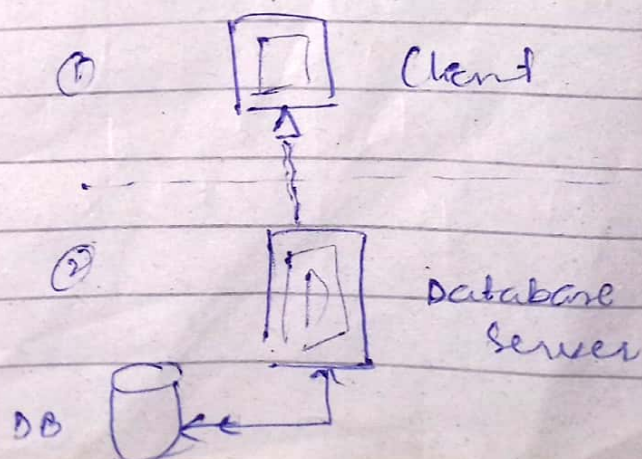 ① Client
② Database
Server
DB